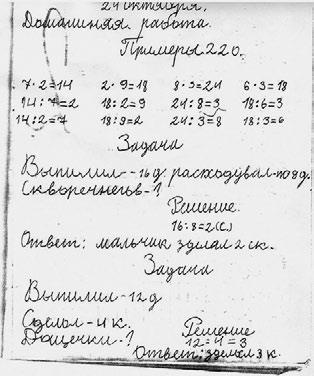 24 октября.
Домашняя работа.
Примеры 220.
7·2=14 2·9=18 8·3=24 6·3=18
14:7=2 18:2=9 24:8=3 18:6=3
14:2=7 18:9=2 24:3=8 18:3=6
Задача
Выпилил -16д. расходувал-по 8д.
Скворечнегов-?
Решение.
16:8=2(С)
Ответ: мальчик зделал 2 ск.
Задача
Выпилил -12д
Сделал-4 к.
Дощечки-? Решение
12:4=3
Ответ: зделал 3 к.